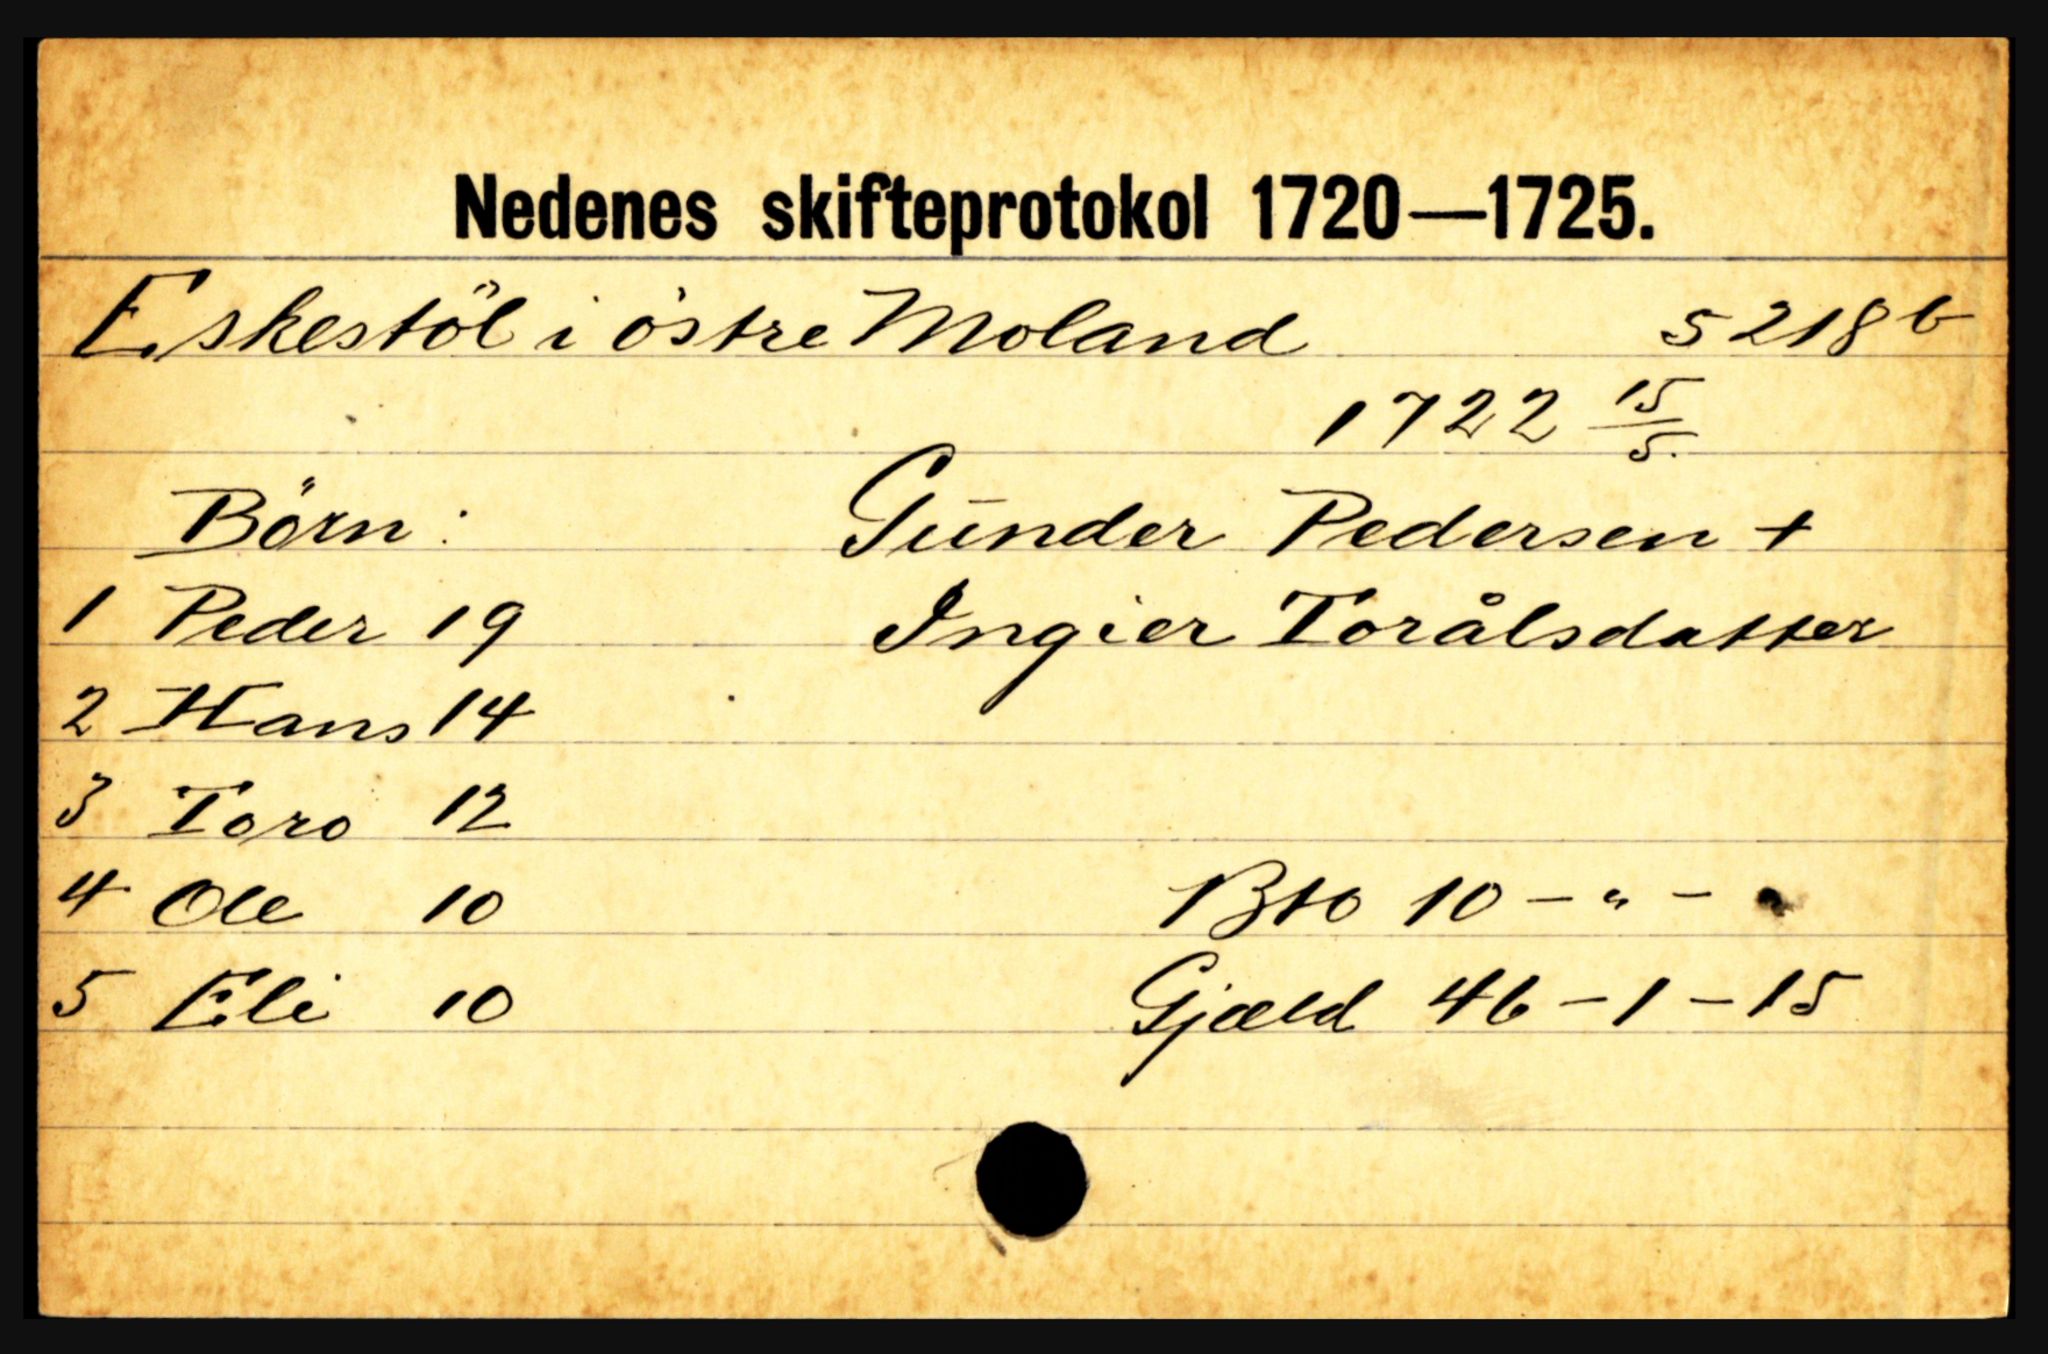 Nedenes skifteprotokol 1720—1725.
Eskestöl i östre Moland 5 218 b
1722 15/5.
Börn: Gunder Pedersen +
1 Peder 19 Ingier Torålsdatter
2 Hans 14
3 Toro 12
4 Ole 10 Bto 10 - " -
5 Eli 10 Gjæld 46 - 1 - 15